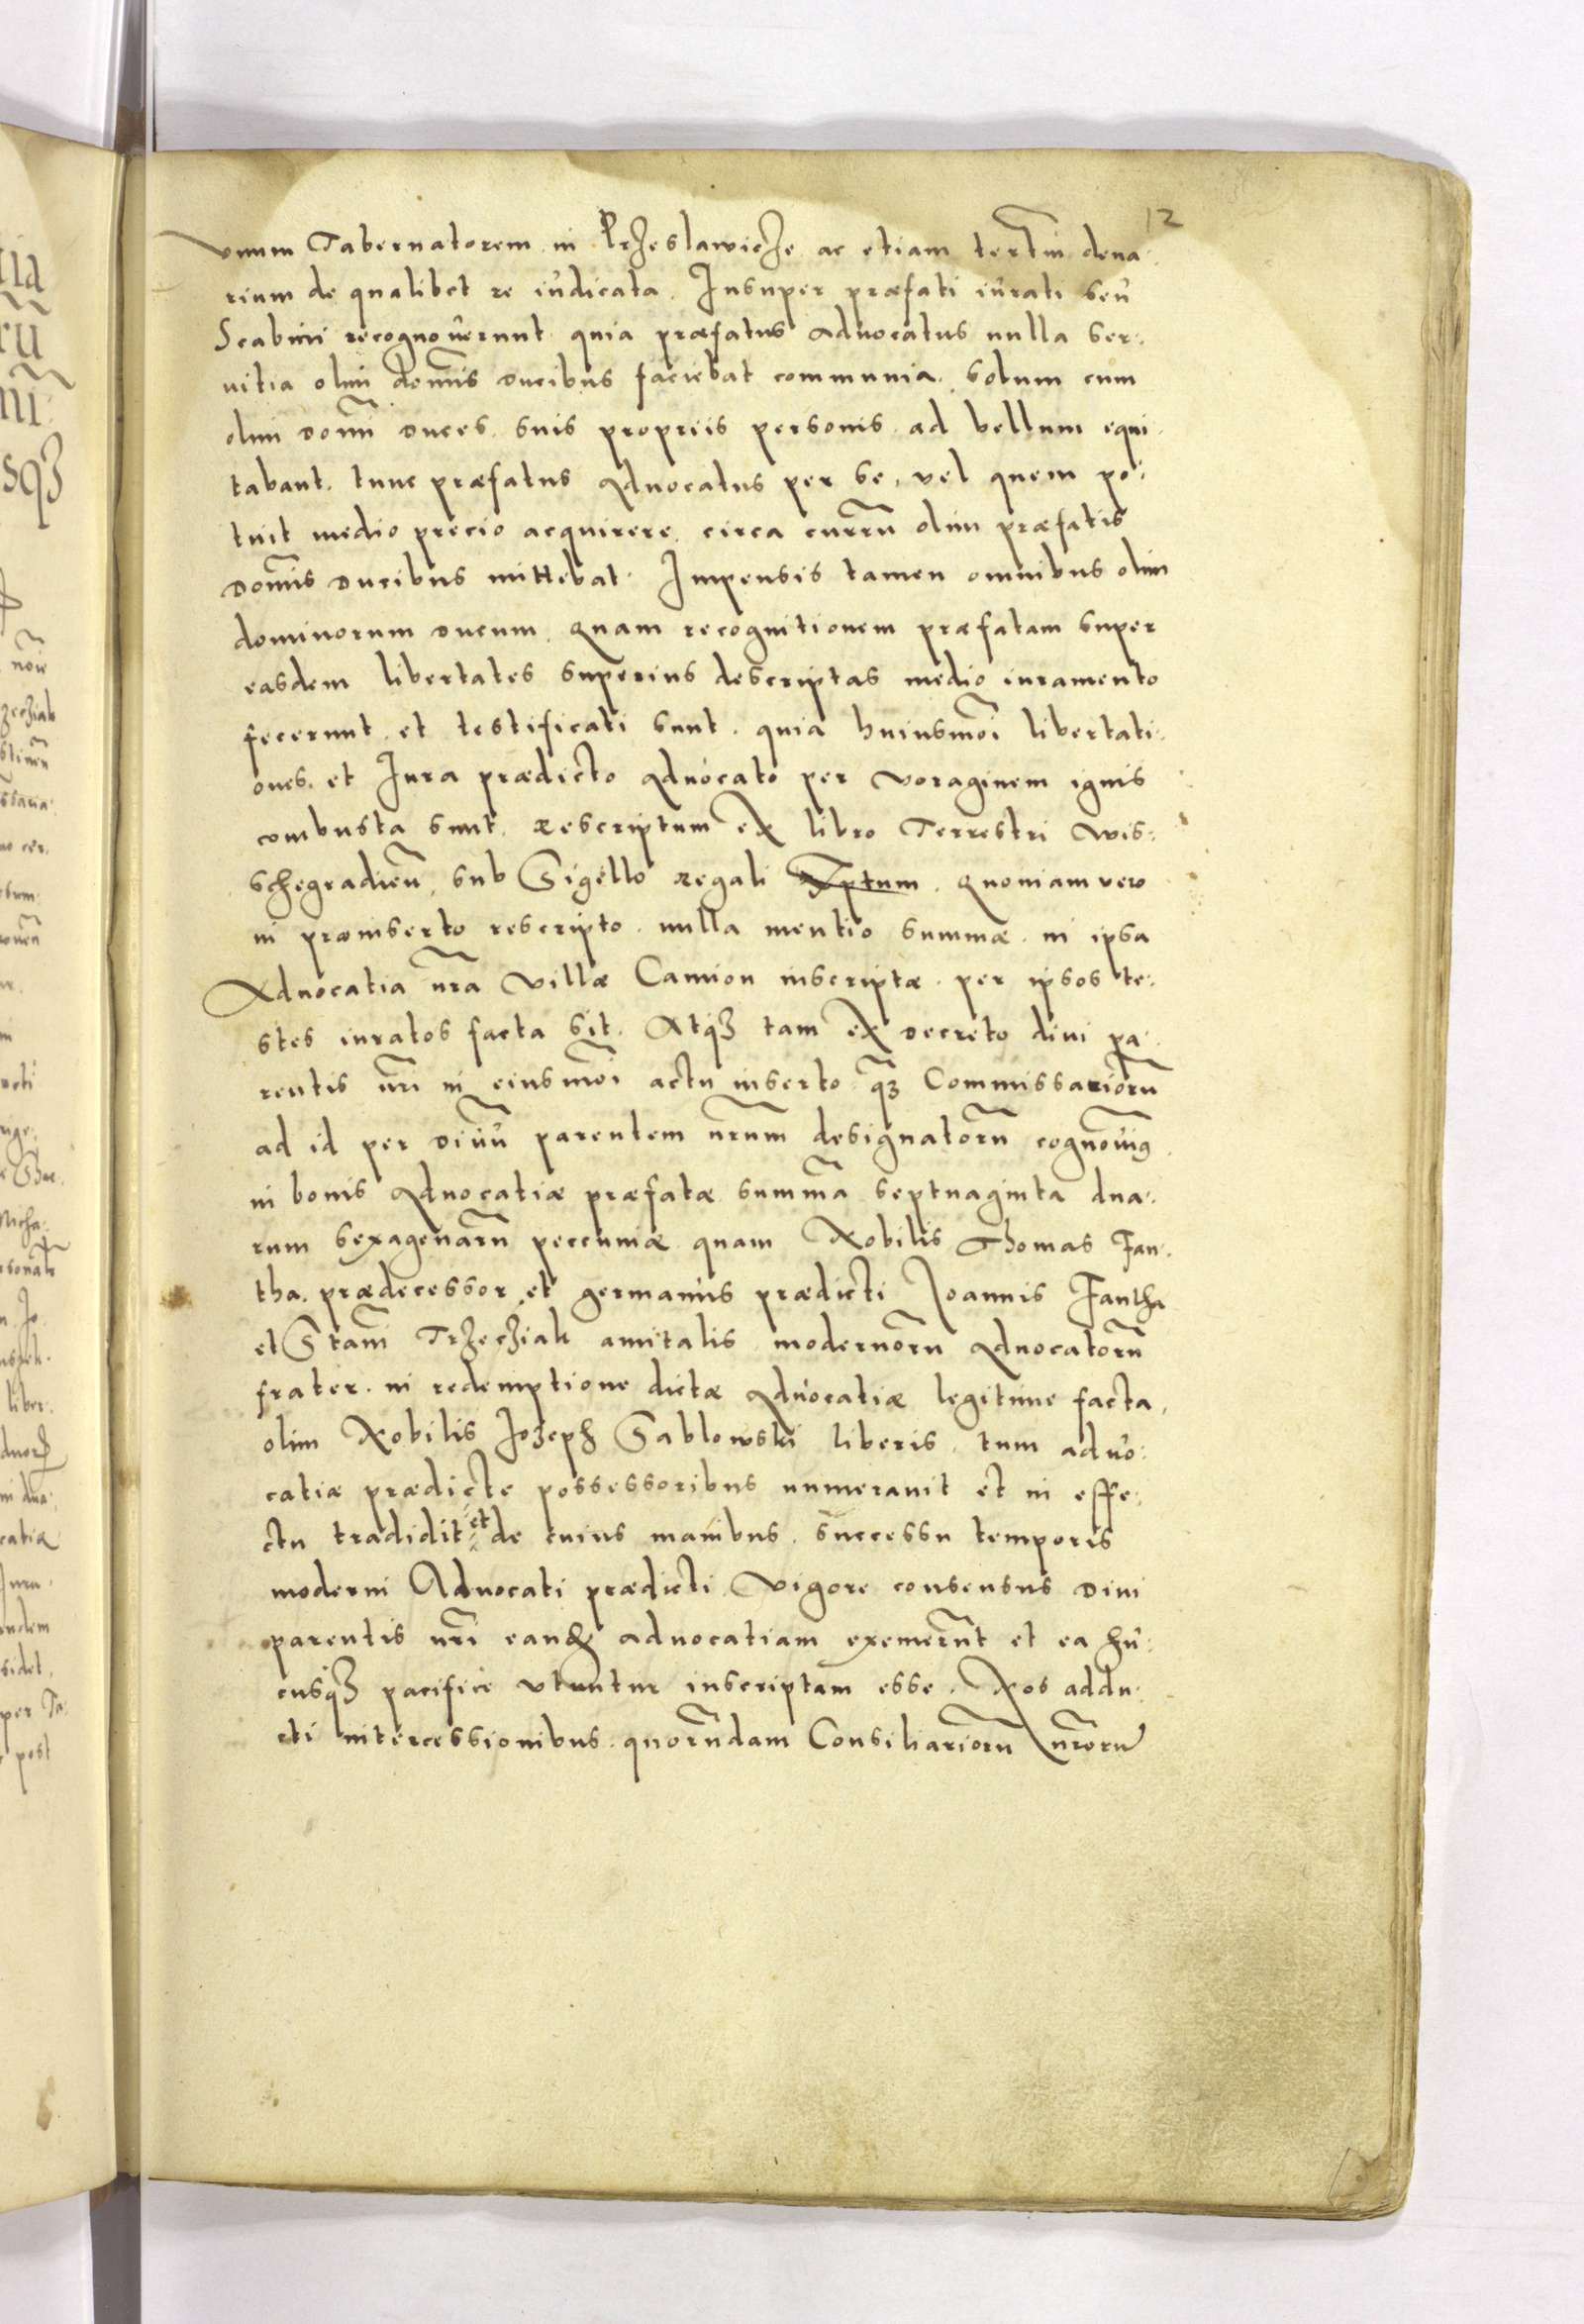 12
vnum Tabernatorem in Przeslawicze ac etiam tertiū dena.
rium de qualibet re iudicata. Insuper præfati iurati seu
Scabini recognouerunt quia præfatus aduocatus nulla ser:
uitia olim domīs ducibus faciebat communia. solum cum
olim domī duces. suis propriis personis ad bellum equi.
tabant. tunc præfatus Aduocatus per se, vel quem po:
tuit medio precio acquirere. circa currū olim præfatis
domīs ducibus mittebat. Impensis tamen omnibus olim
dominorum ducum. Quam recognitionem præfatam super
easdem libertates superius descriptas medio iuramento
fecerunt et testificati sunt. quia huiusmōi libertati:
ones. et Iura prædicto Aduocato per voraginem ignis
combusta sunt. Rescriptum ex libro Terrestri Wis:
schegradieñ. sub Sigillo Regali. Quoniam vero
in præinserto rescripto. nulla mentio summæ. in ipsa
Aduocatia nr̄a Villæ Camion inscriptæ. per ipsos te:
stes iuratos facta sit. Atqꝫ tam ex decreto diui pa.
rentis nr̄i in eiusmōi actu inserto qꝫ Commissariorū
ad id per diuū parentem nr̄um designatorū cognouimꝯ
in bonis Aduocatiæ præfatæ summā septuaginta dua:
rum sexagenarū peccuniæ quam Nobilis Thomas Fan.
tha. prædecessor et germanus prædicti Joannis Fantha
et Stanī Trzecziak amitalis modernorū Aduocatorū
frater. in redemptione dictæ Aduocatiæ legitime facta,
olim Nobilis Jozeph Sablowski liberis. tum aduo:
catiæ prædicte possessoribus numerauit et in effe:
ctu tradidit et de cuius manibus. successu temporis
moderni Aduocati prædicti vigore consensus diui
parentis nr̄i eandē aduocatiam exemerūt et ea hu:
cusqꝫ pacifice vtuntur inscriptam esse. Nos addu:
cti intercessionibus. quorūdam Consiliariorū nr̄orū